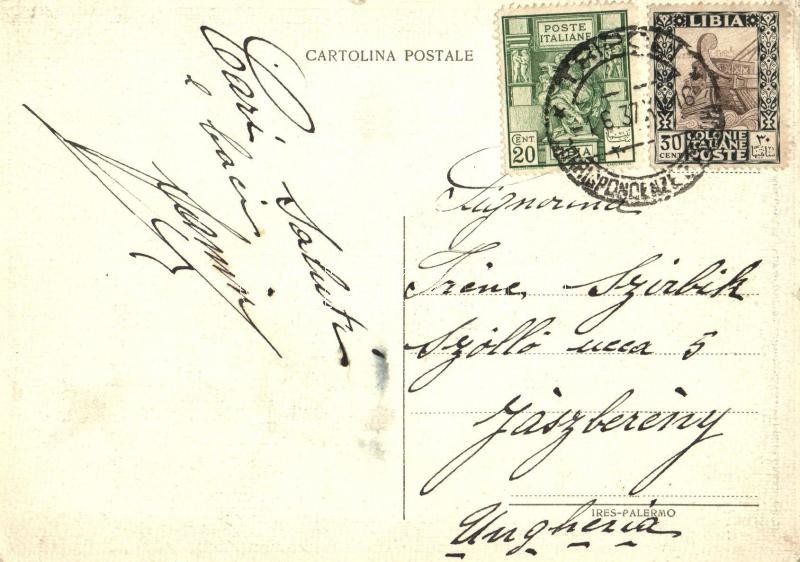 CARTOLINA POSTALE
Cari saluti
e baci
POSTE
ITALIANE
CENT
20
LIBIA
LIBIA
30
CENT
COLONIE
ITALIANE
POSTE
٣٠
TRIPOLI
6.37
CORRISPONDENZE
Signorina
Iréne Szirbik
Szölló ucca 5
Jászberény
Ungheria
IRES-PALERMO